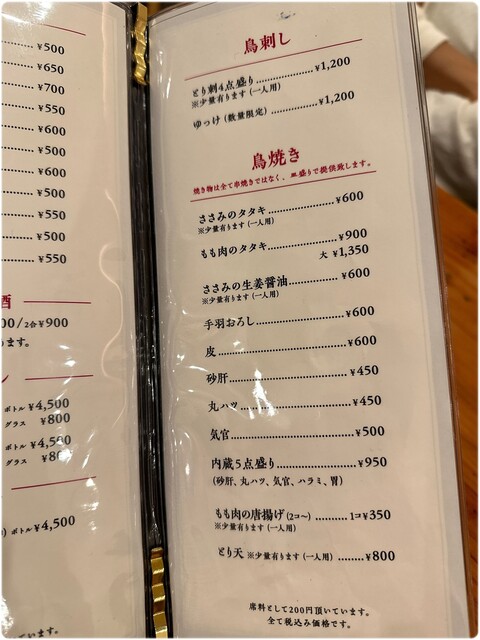 ¥500
¥650
¥700
¥550
¥600
¥500
¥600
¥500
¥550
¥500
¥550
酒
00/2合¥900
ます。
ン
ボトル ¥4,500
グラス ¥800
ボトル ¥4,500
グラス ¥800
ボトル ¥4,500
ています。
鳥刺し
とり刺4点盛り ¥1,200
※少量有ります (一人用)
ゆっけ (数量限定) ¥1,200
鳥焼き
焼き物は全て串焼きではなく、皿盛りで提供致します。
ささみのタタキ ¥600
※少量有ります (一人用)
もも肉のタタキ ¥900
大 ¥1,350
ささみの生姜醤油 ¥600
※少量有ります (一人用)
手羽おろし ¥600
皮 ¥600
砂肝 ¥450
丸ハツ ¥450
気官 ¥500
内蔵5点盛り ¥950
(砂肝、丸ハツ、気官、ハラミ、胃)
もも肉の唐揚げ (2コ〜) 1コ¥350
※少量有ります (一人用)
とり天 ※少量有ります (一人用) ¥800
席料として200円頂いています。
全て税込み価格です。